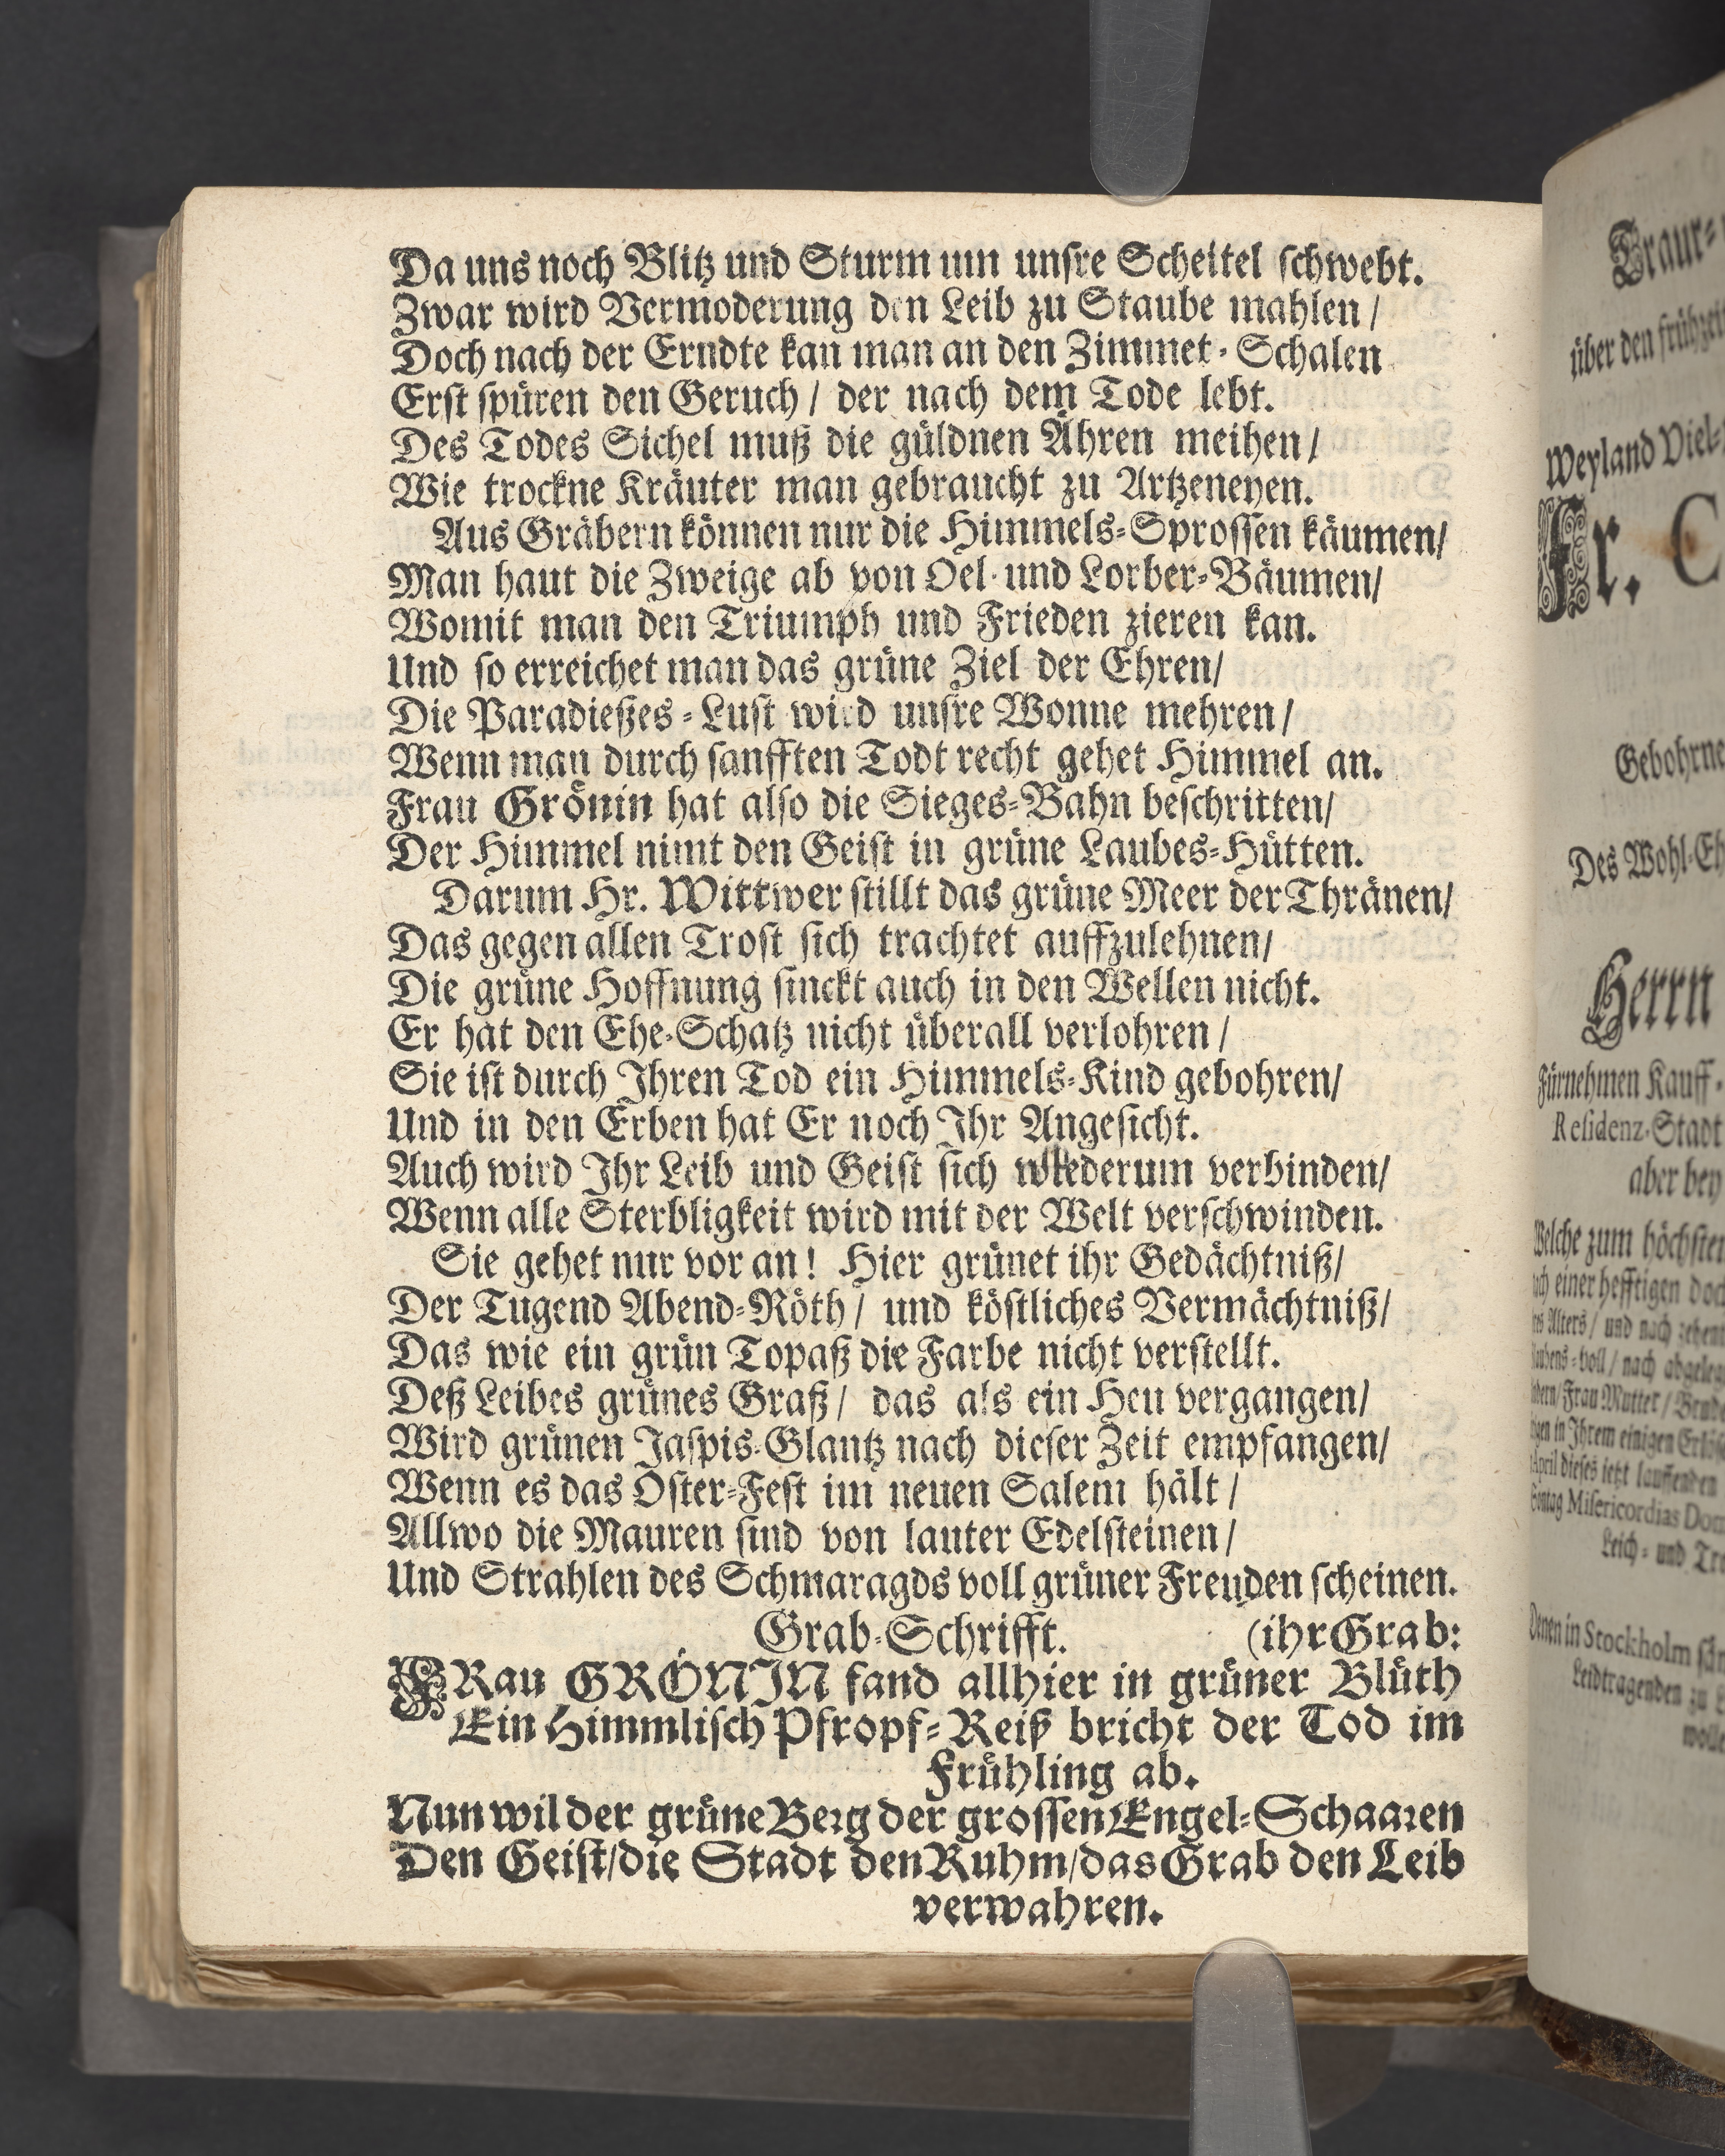 Da uns noch Blitz und Sturm um unsre Scheitel schwebt.
Zwar wird Vermoderung den Leib zu Staube mahlen /
Doch nach der Erndte kan man an den Zimmet-Schalen
Erst spüren den Geruch / der nach dem Tode lebt.
Des Todes Sichel muß die güldnen Ähren meihen /
Wie trockne Kräuter man gebraucht zu Artzeneyen.
Aus Gräbern können nur die Himmels-Sprossen käumen/
Man haut die Zweige ab von Oel- und Lorber-Bäumen/
Womit man den Triumph und Frieden zieren kan.
Und so erreichet man das grüne Ziel der Ehren/
Die Paradießes-Lust wird unsre Wonne mehren /
Wenn man durch sanfften Todt recht gehet Himmel an.
Frau Grönin hat also die Sieges-Bahn beschritten/
Der Himmel nimt den Geist in grüne Laubes-Hütten.
Darum Hr. Wittwer stillt das grüne Meer der Thränen/
Das gegen allen Trost sich trachtet auffzulehnen/
Die grüne Hoffnung sinckt auch in den Wellen nicht.
Er hat den Ehe-Schatz nicht überall verlohren /
Sie ist durch Ihren Tod ein Himmels-Kind gebohren/
Und in den Erben hat Er noch Ihr Angesicht.
Auch wird Ihr Leib und Geist sich wiederum verbinden/
Wenn alle Sterbligkeit wird mit der Welt verschwinden.
Sie gehet nur vor an! Hier grünet ihr Gedächtniß/
Der Tugend Abend-Röth / und köstliches Vermächtniß/
Das wie ein grün Topaß die Farbe nicht verstellt.
Deß Leibes grünes Graß / das als ein Heu vergangen/
Wird grünen Jaspis-Glantz nach dieser Zeit empfangen/
Wenn es das Oster-Fest im neuen Salem hält /
Allwo die Mauren sind von lauter Edelsteinen /
Und Strahlen des Schmaragds voll grüner Freuden scheinen.
Grab-Schrifft. (ihr Grab:
FRau GRÖNIN fand allhier in grüner Blüth
Ein Himmlisch Pfropf-Reiß bricht der Tod im
Frühling ab.
Nun wil der grüne Berg der grossen Engel-Schaaren
Den Geist/die Stadt den Ruhm/das Grab den Leib
verwahren.
Traur-
über den
Weyland Viel-
Fr. C
Gebohrne
Des Wohl-Eh
Herrn
Fürnehmen Kauff-
Residenz-Stadt
aber bey
Welche zum höchsten
einer hefftigen
Alters / und nach
voll / nach
Frau Mutter /
in Ihrem einigen
April dieses ietzt lauffenden
Misericordias Dom
Leich- und
in Stockholm
Leidtragenden zu